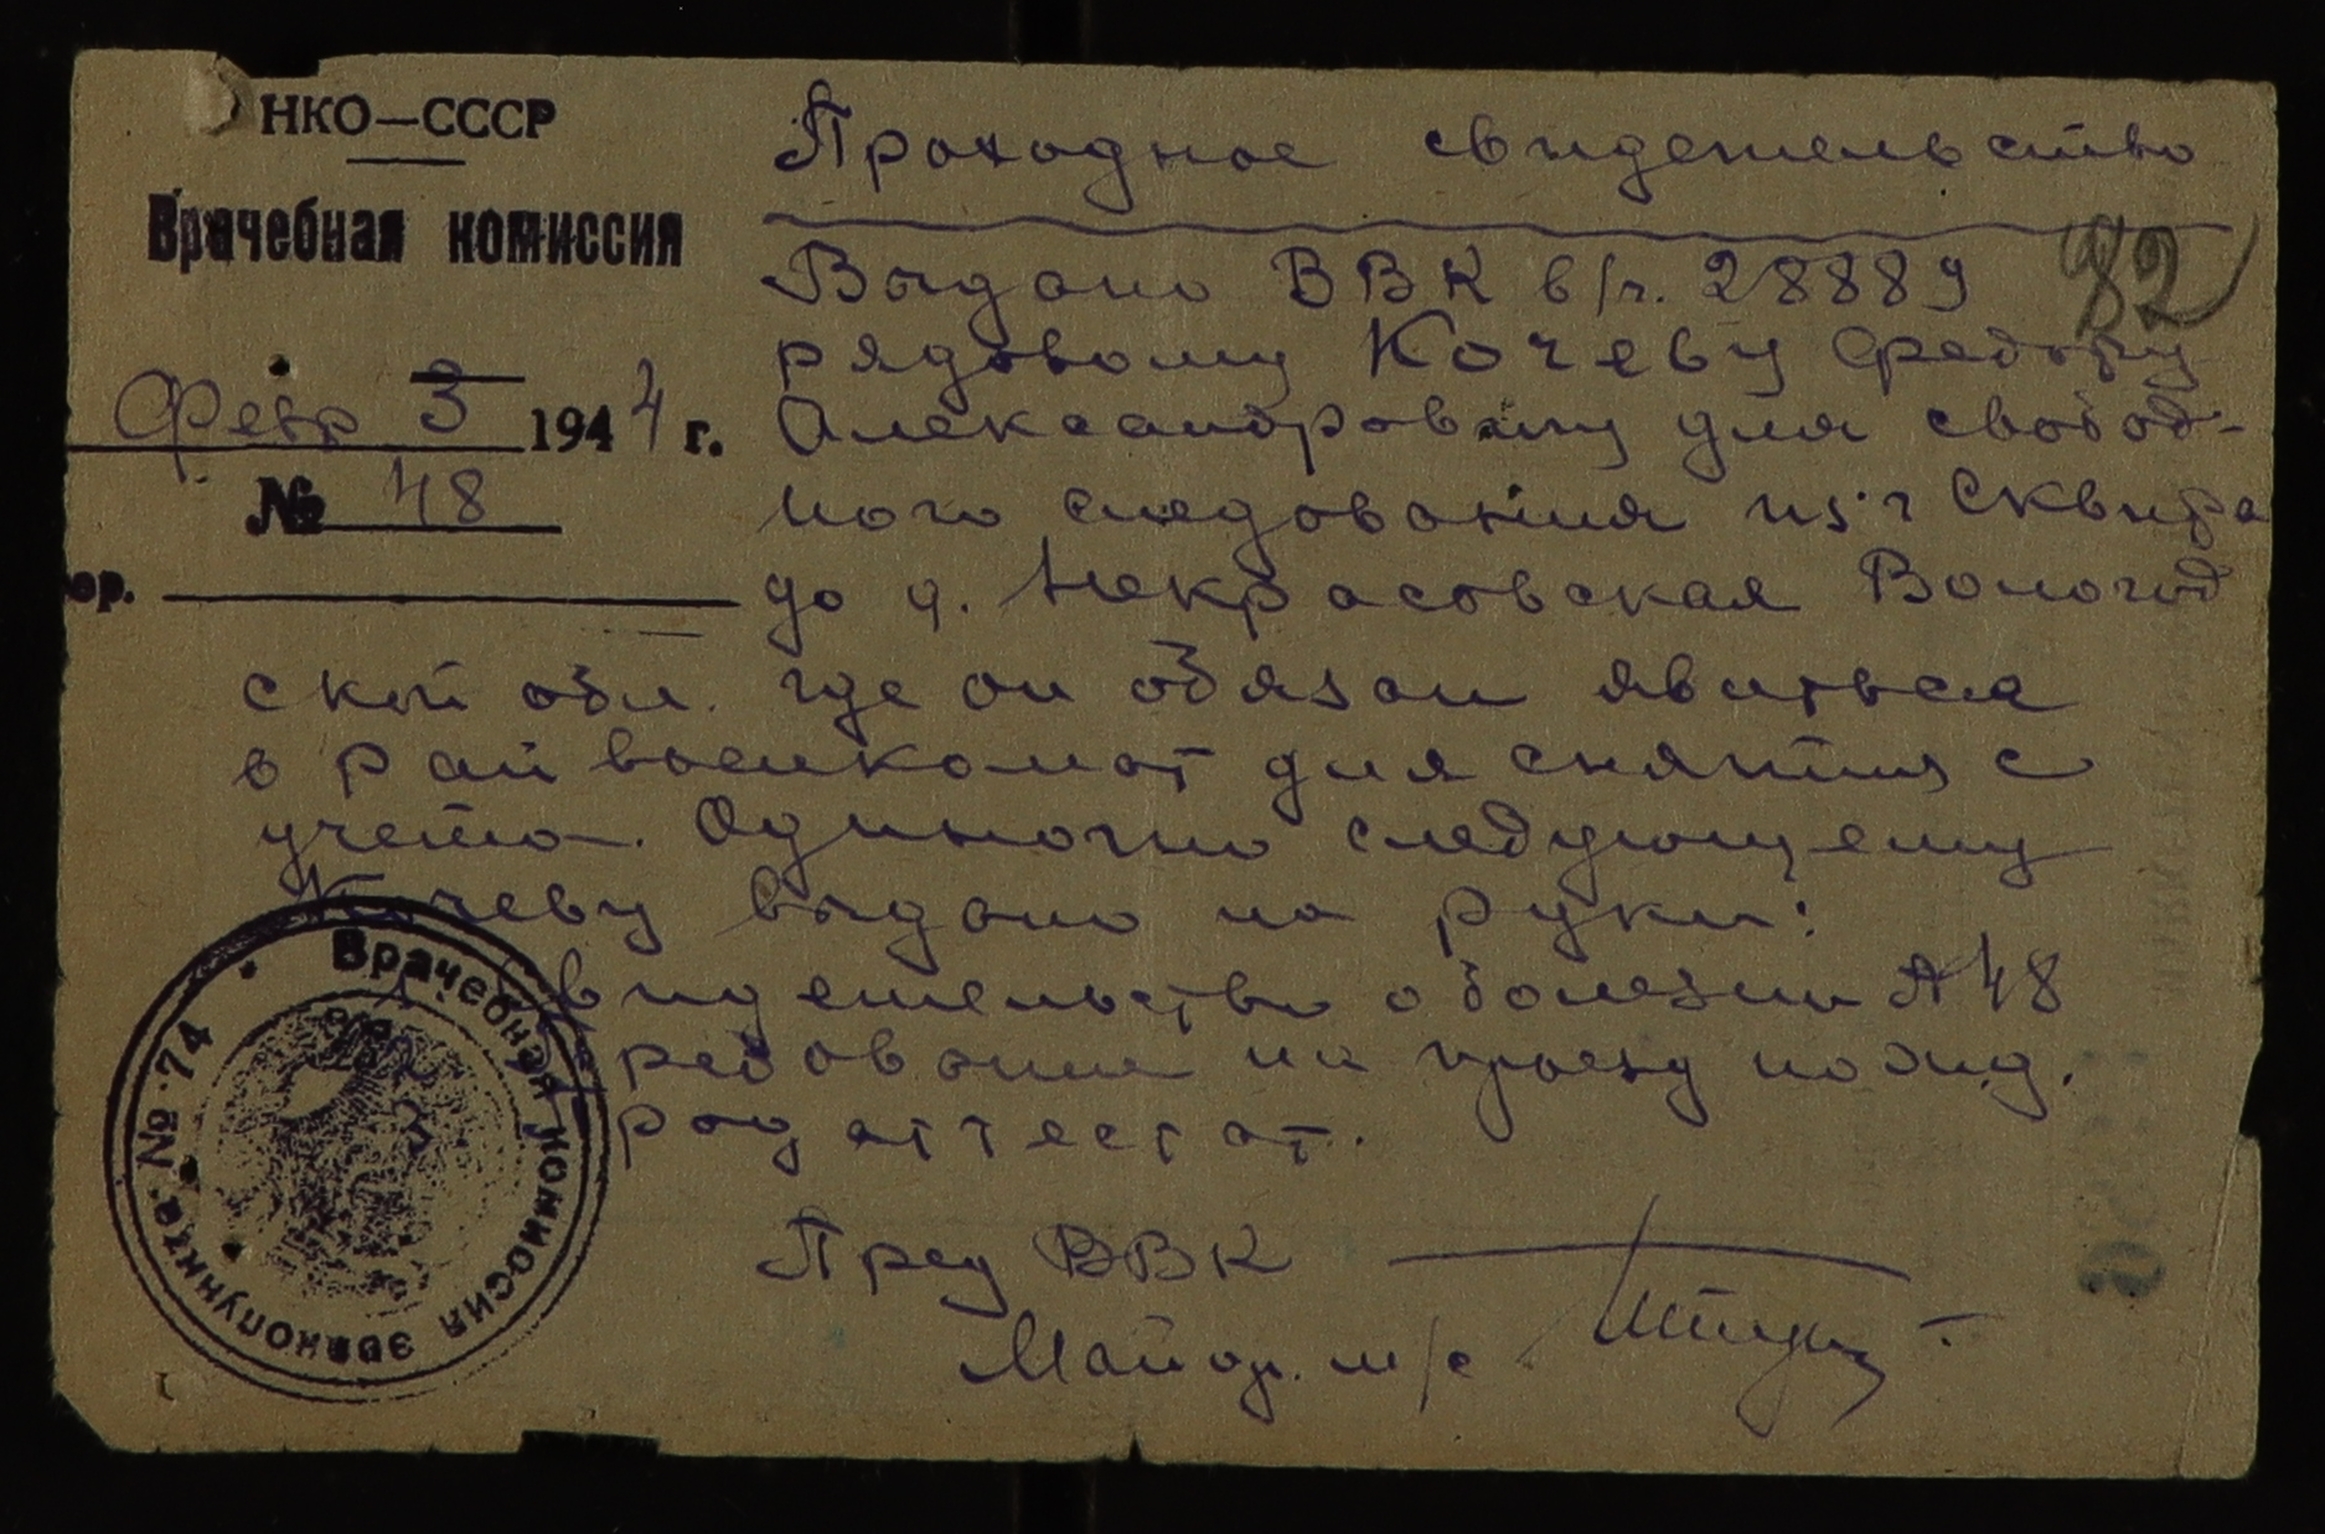 НКО—СССР
Врачебная комиссия
Февр 3 1944 г.
№ 48
ор.
Проходное свидетельство
82
Выдано ВВК в/ч. 28889
рядовому Кочеву Федору
Александровичу для свобод-
ного следования из г Сквира
до д. Некрасовская Вологод
ской обл. где он обязан явиться
в райвоенкомат для снятия с
учета. Одиночно следующему
Кочеву выдано на руки:
1 Свидетельство о болезни № 48
2 Требование на проезд по ж.д.
3 Прод аттестат.
Пред ВВК
Майор. м/с
Врачебная комиссия эвакопункта № 74